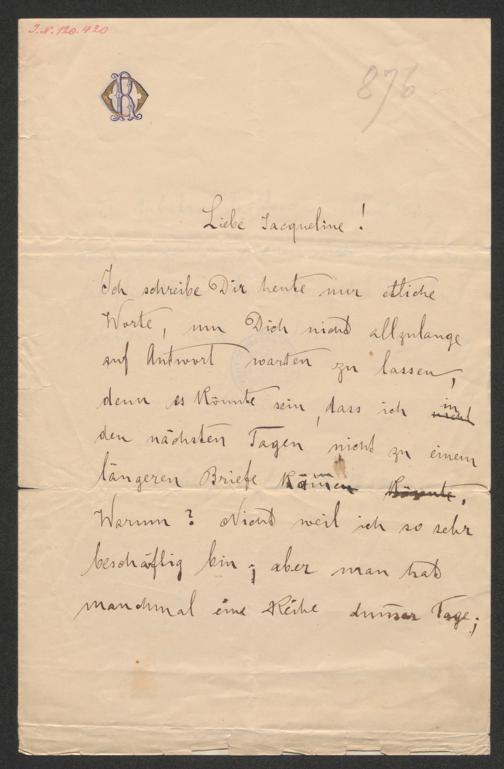 I.N. 120.420
876
Liebe Jacqueline!
Ich schreibe Dir heute nur etliche
Worte, um Dich nicht allzulange
auf Antwort warten zu lassen,
denn es könnte sein, dass ich in
den nächsten Tagen nicht zu einem
längeren Briefe
Warum? Nicht weil ich so sehr
beschäftig bin; aber man hat
manchmal eine Reihe Tage;